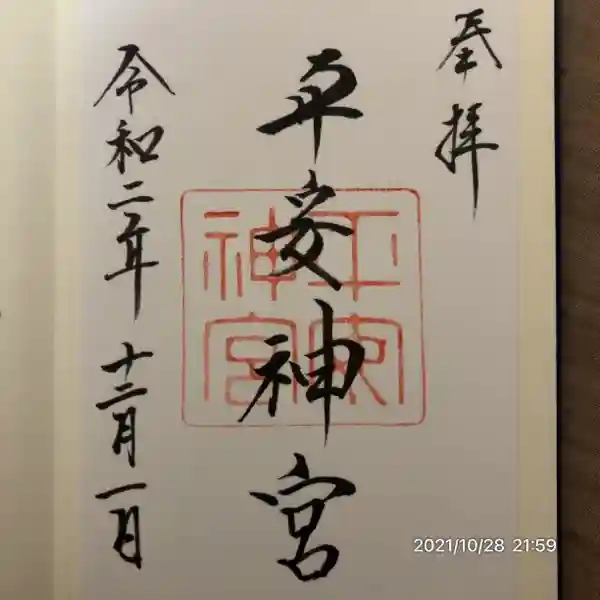 奉拝
平安神宮
平安神宮
令和二年十二月一日
2021/10/28 21:59